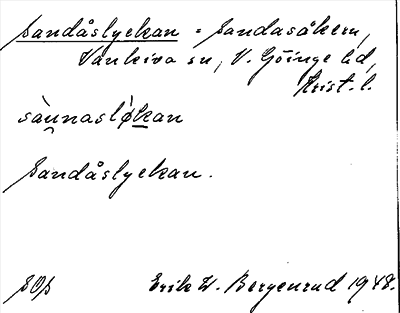 Sandåslyckan = Sandasåkern,
Vankiva sn, V. Göinge hd,
Krist. l.
sàunnasløkan
Sandåslyckan.
SOs Erik W. Bergenrud 1948.